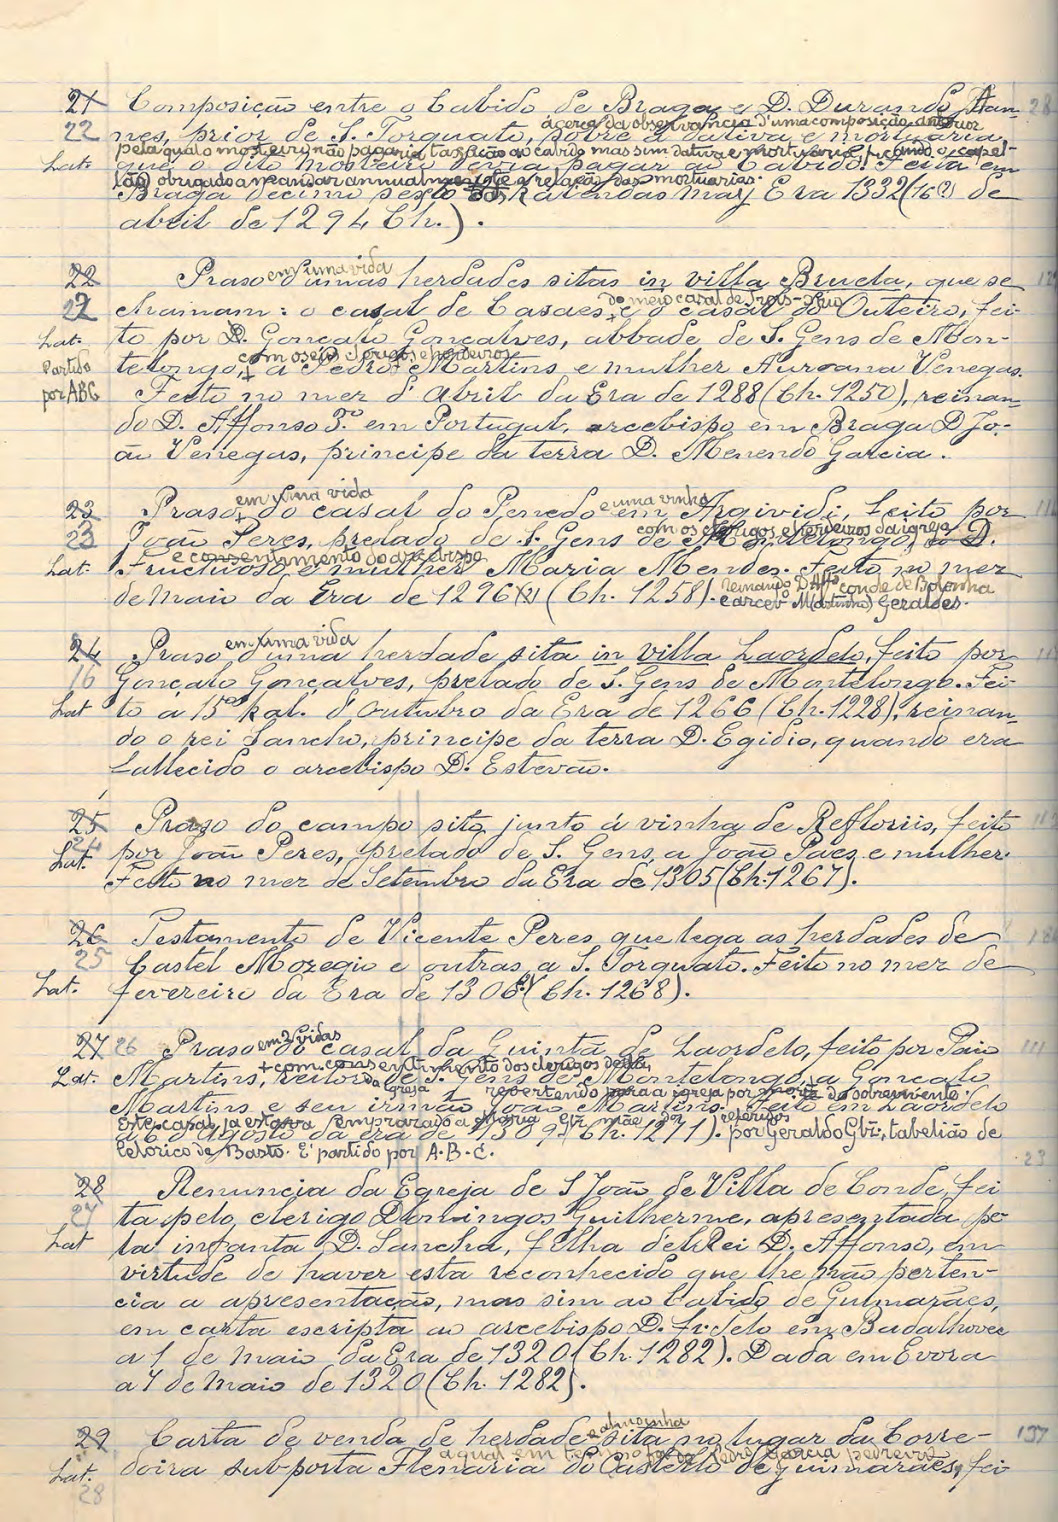 21 Composição entre o Cabido de Braga e D. Durando Han- 28
ácerca da observancia d'uma composição anterior
22 nes, prior de S. Torquato, sobre a dativa e mortuaria
pela qual o mosteiro não pagaria taxação ao cabido mas sim dativa e mortuaria, ficando o capel-
Lat. que o dito mosteiro havia pagar ao Cabido. Feita em
lão obrigado a mandar annualmente a relação das mortuarias.
Braga decimo sexto Kalendas may Era 1332 (16(?) de
abril de 1294 Ch.).
22 Praso em uma vida d'umas herdades sitas in villa Bruela, que se
22 chamam: o casal de Casaes, do meio casal de e o casal do Outeiro, fei-
Lat. to por D. Gonçalo Gonçalves, abbade de S. Gens de Mon-
Partido com os seus clerigos e herdeiros
telongo, + a Pedro Martins e mulher Auroana Venegas.
por ABC Feito no mez d'Abril da Era de 1288 (Ch. 1250), reinan-
do D. Affonso 3.º em Portugal, arcebispo em Braga D. Jo-
ão Venegas, principe da terra D. Menendo Garcia.
em uma vida e uma vinha
23 Praso + do casal do Penedo em Argividi, feito por
com os clerigos e herdeiros da igreja
23 João Peres, prelado de S. Gens de Montelongo, a D.
e consentimento do arcebispo
Lat. Fructuoso e mulher Maria Mendes. Feito no mez
de Maio da Era de 1296 (Ch. 1258). reinando D. Affº conde de Bolonha
e arceb. M(artinho) Geraldes.
em uma vida
24 Praso d'uma herdade sita in villa Laordelo, feito por
16 Gonçalo Gonçalves, prelado de S. Gens de Montelongo. Fei-
Lat to a 15 kal. d'Outubro da Era de 1266 (Ch. 1228), reinan-
do o rei Sancho, principe da terra D. Egidio, quando era
fallecido o arcebispo D. Estevão.
25 Praso do campo sito junto á vinha de Refloriis, feito
24
Lat. por João Peres, prelado de S. Gens, a João Paes e mulher.
Feito no mez de Setembro da Era de 1305 (Ch. 1267).
26 Testamento de Vicente Peres que lega as herdades de
25 Castel Mozegio e outras a S. Torquato. Feito no mez de
Lat. fevereiro da Era de 1306 (Ch. 1268).
em 2 vidas
27 26 Praso do casal da Quintã de Laordelo, feito por Paio 111
+ com consentimento dos clerigos desta
Lat. Martins, reitor de S. Gens de Montelongo, a Gonçalo
da igreja revertendo para a igreja por morte do sobrevivente.
Martins e seu irmão João Martins. Feito em Laordelo
Este casal ja estava emprazado a Maria Glz mãe dos referidos
a 6 d'Agosto da era de 1309 (Ch. 1271). por Geraldo Glz, tabelião de
Celorico de Basto. É partido por A.B.C.
23
28 Renuncia da Egreja de S João de Villa de Conde, fei-
27 ta pelo clerigo Domingos Guilherme, apresentada pe-
Lat la infanta D. Sancha, filha d'el Rei D. Affonso, em
virtude de haver esta reconhecido que lhe não perten-
cia a apresentação, mas sim ao Cabido de Guimarães,
em carta escripta ao arcebispo D. Fr. Telo em Badalhouce
a 1 de Maio da Era de 1320 (Ch. 1282). Dada em Evora
a 7 de Maio de 1320 (Ch. 1282).
e almoinha
29 Carta de venda de herdade sita no lugar da Corre- 137
a qual em tempo foi de Pedro Garcia pedreiro
Lat. doira sub porta Flenaria do Castello de Guimarães, fei-
28